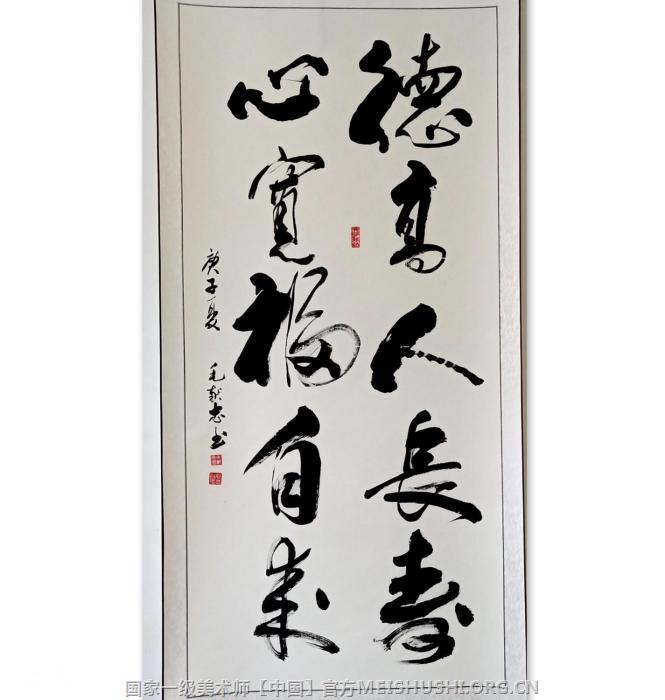 德高人長壽
心寬福自來
庚子夏 毛献忠书
国家一级美术师【中国】官方MEISHUSHI.ORG.CN